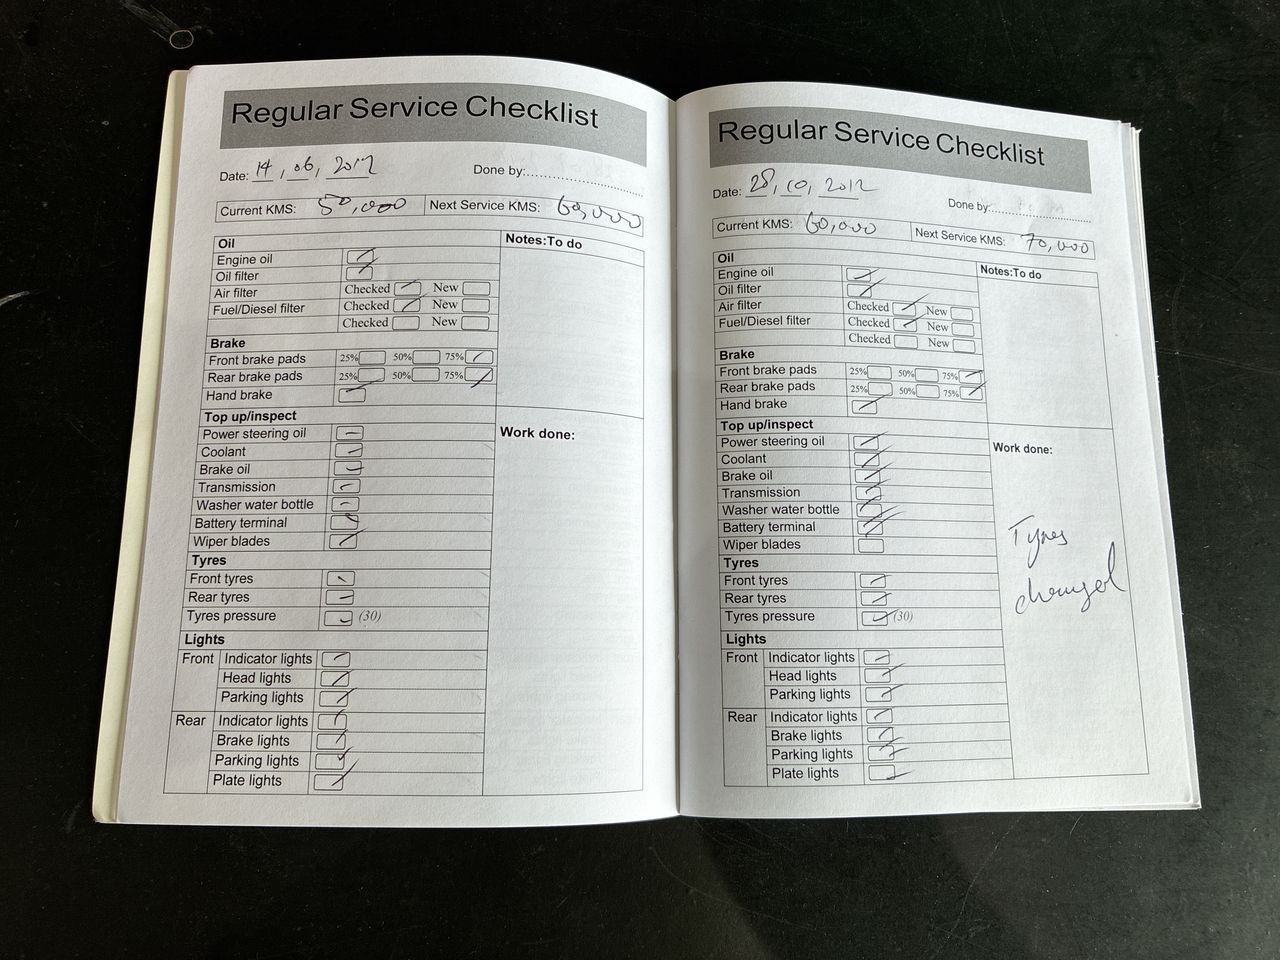 Regular Service Checklist
Date: 14, 06, 2012 Done by:
Current KMS: 50,000 Next Service KMS: 60,000
Oil Notes:To do
Engine oil
Oil filter
Air filter Checked New
Fuel/Diesel filter Checked New
Checked New
Brake
Front brake pads 25% 50% 75%
Rear brake pads 25% 50% 75%
Hand brake
Top up/inspect
Power steering oil Work done:
Coolant
Brake oil
Transmission
Washer water bottle
Battery terminal
Wiper blades
Tyres
Front tyres
Rear tyres
Tyres pressure (30)
Lights
Front Indicator lights
Head lights
Parking lights
Rear Indicator lights
Brake lights
Parking lights
Plate lights
Regular Service Checklist
Date: 28, 10, 2012 Done by:
Current KMS: 60,000 Next Service KMS: 70,000
Oil Notes:To do
Engine oil
Oil filter
Air filter Checked New
Fuel/Diesel filter Checked New
Checked New
Brake
Front brake pads 25% 50% 75%
Rear brake pads 25% 50% 75%
Hand brake
Top up/inspect
Power steering oil Work done:
Coolant
Brake oil
Transmission
Washer water bottle
Battery terminal
Wiper blades
Tyres
changed
Tyres
Front tyres
Rear tyres
Tyres pressure (30)
Lights
Front Indicator lights
Head lights
Parking lights
Rear Indicator lights
Brake lights
Parking lights
Plate lights